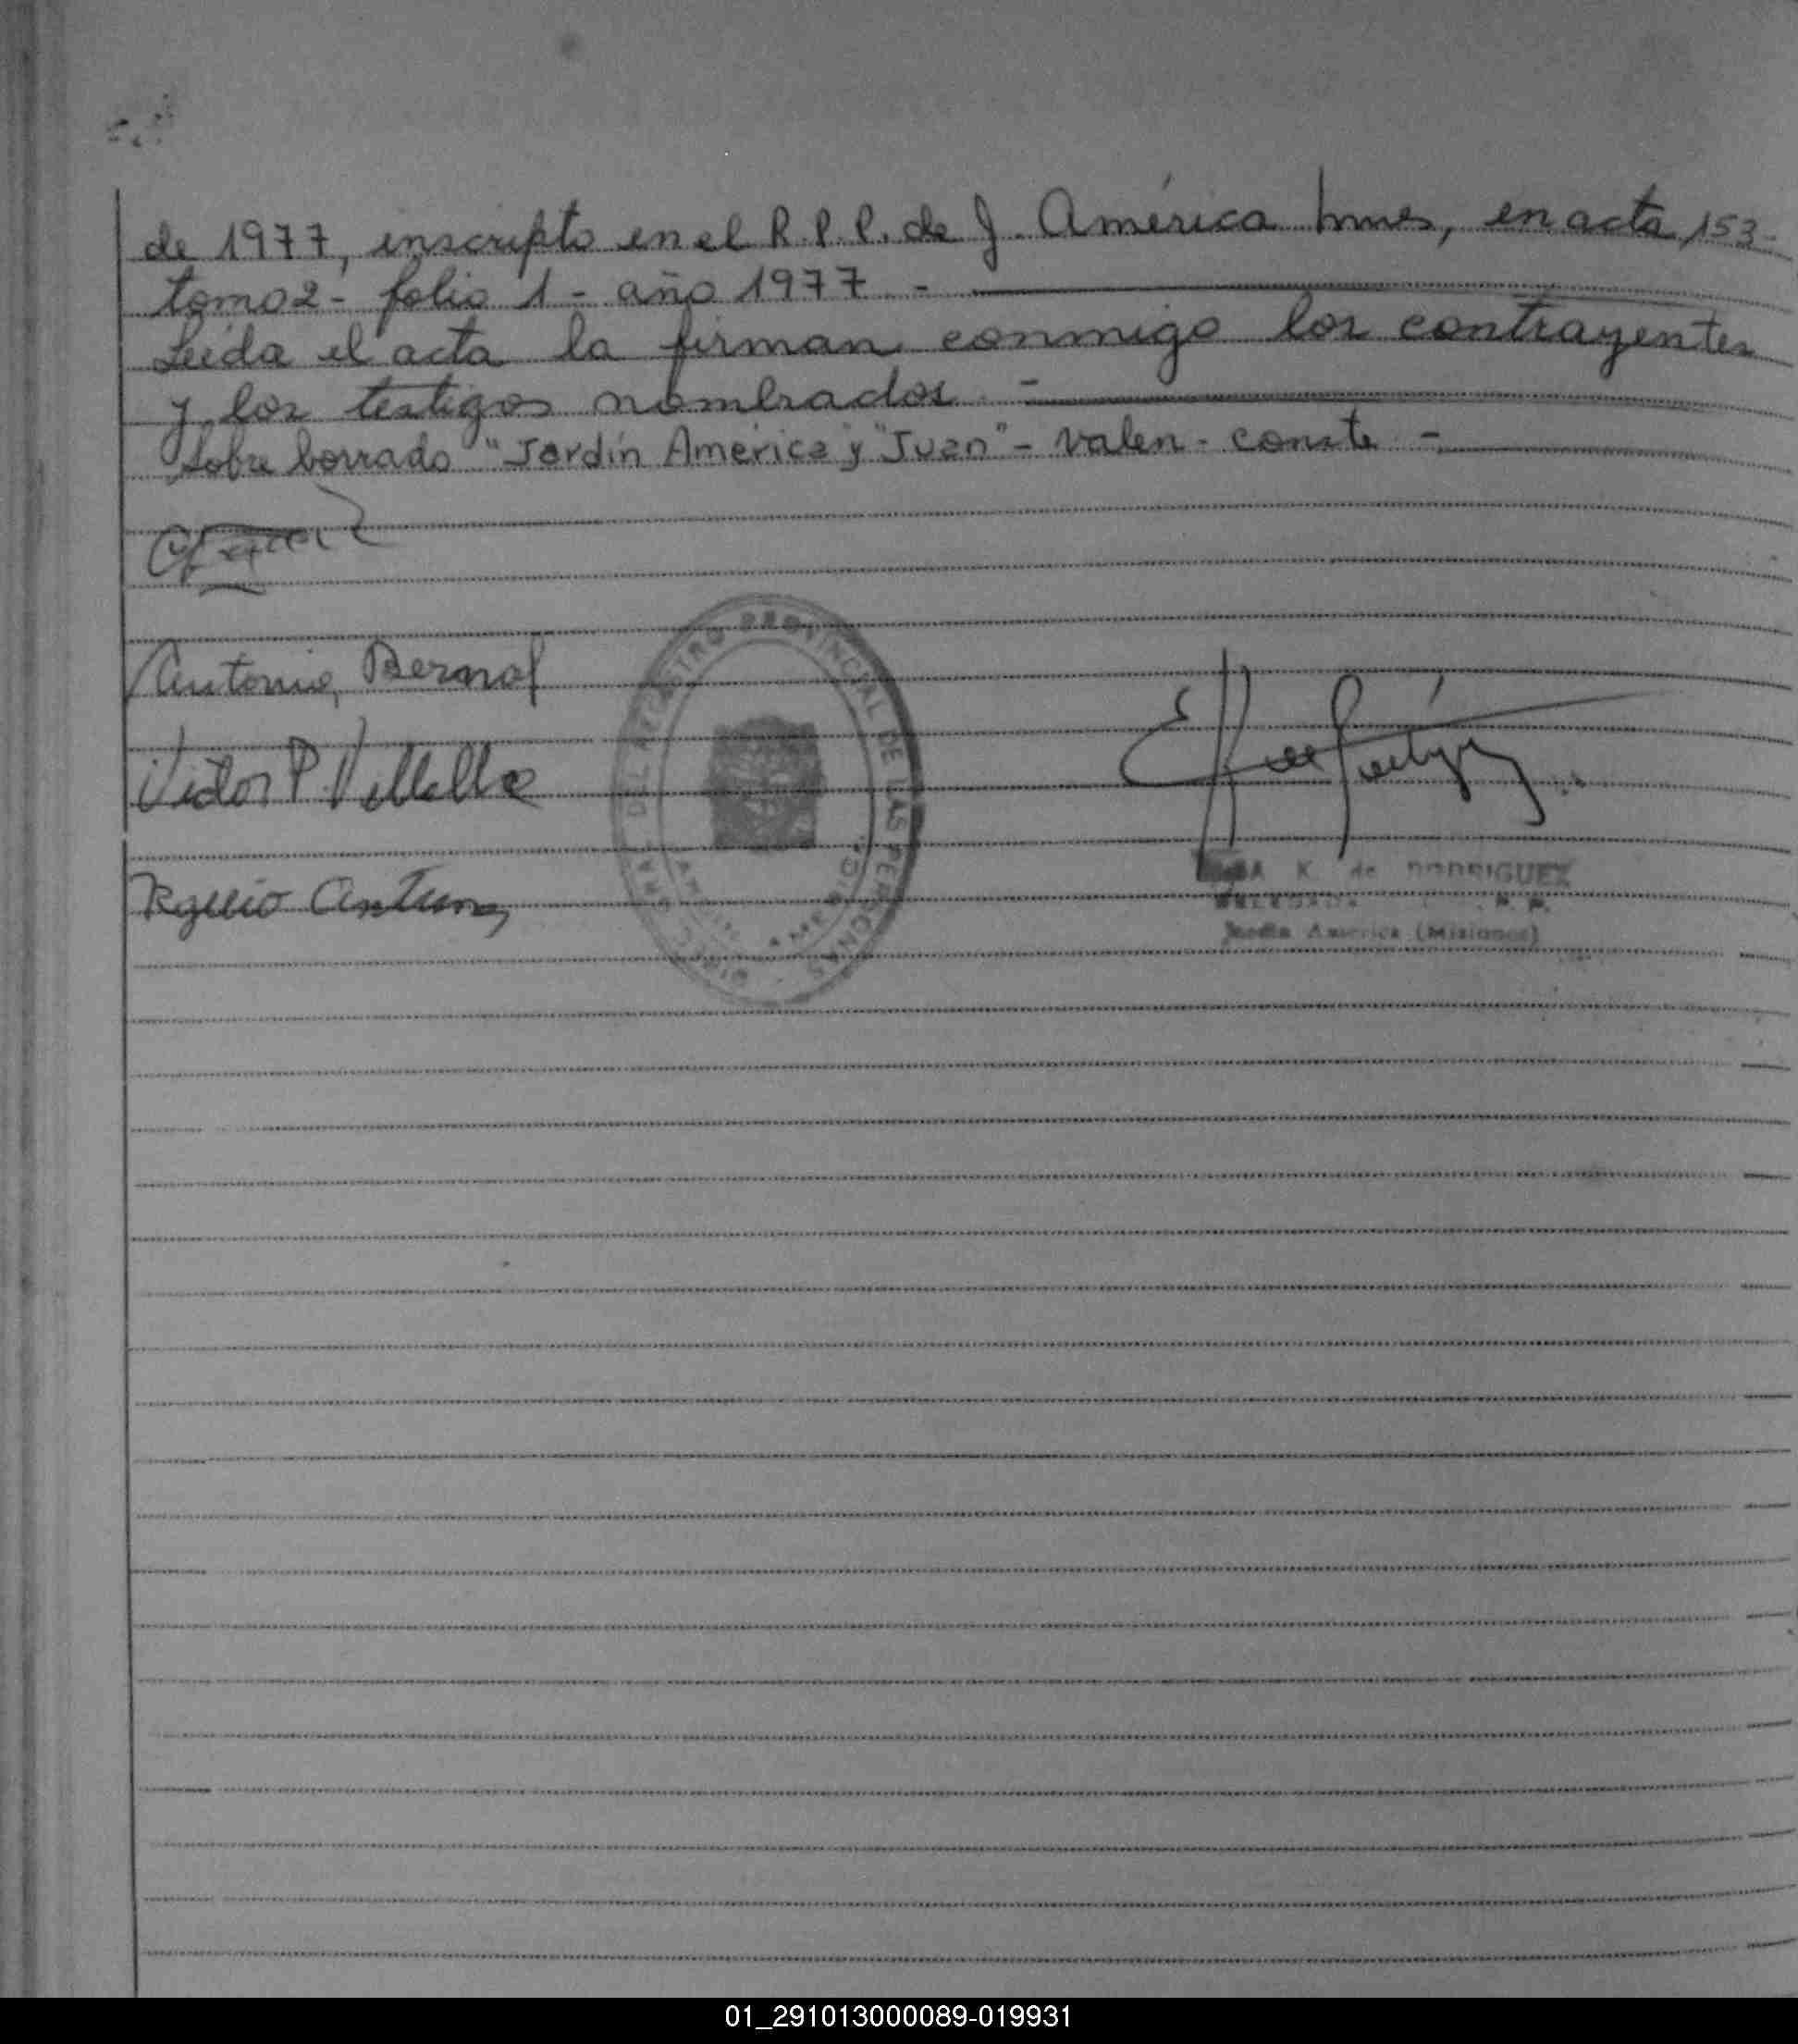 de 1977, inscripto en el R.P.P. de J. América Mnes, en acta 153-
tomo 2 - folio 1 - año 1977 -
Leída el acta la firman conmigo los contrayentes
y los testigos nombrados -
Sobre borrado "Jardín América" y "Juan" - valen - conste -
Antonio Bernal
Victor P. Villalba
REGISTRO PROVINCIAL DE LAS PERSONAS
K. de RODRIGUEZ
América (Misiones)
01_291013000089-019931